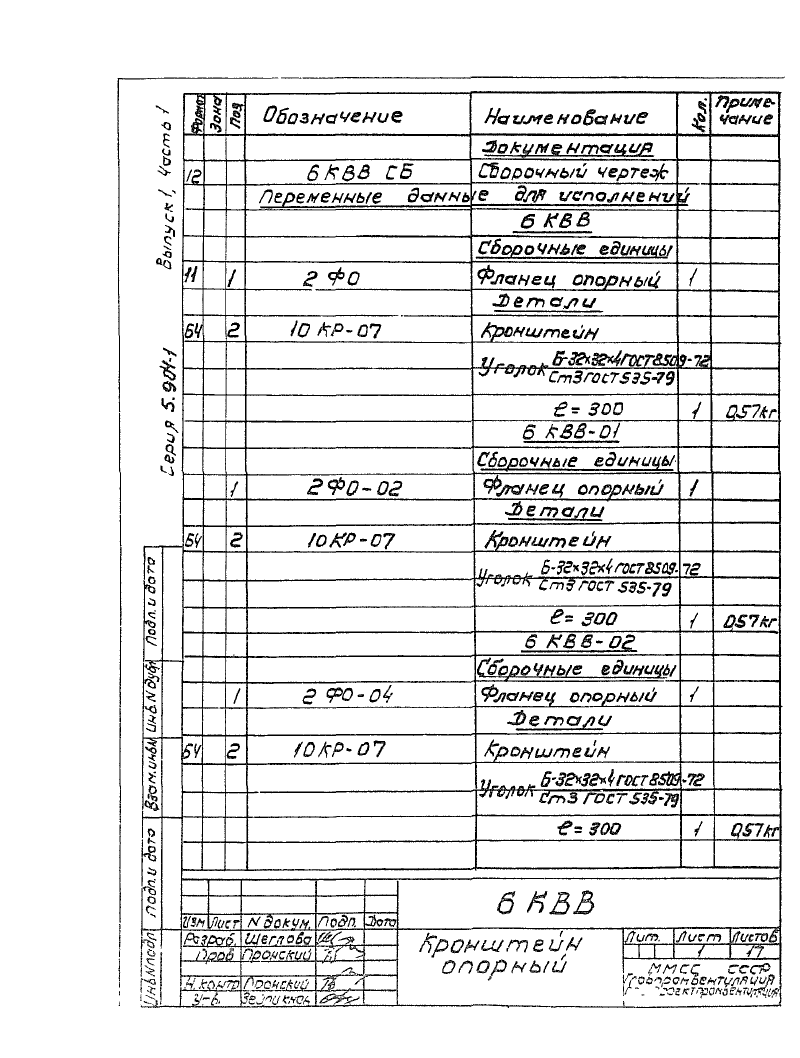 Серия 5.904-1 Выпуск 1, Часть 1
Формат Зона Поз. Обозначение Наименование Кол. Приме-чание
Документация
12 6 КВВ СБ Сборочный чертеж
Переменные данные для исполнений
6 КВВ
Сборочные единицы
11 1 2 ФО Фланец опорный 1
Детали
Б4 2 10 КР-07 Кронштейн
Уголок Б-32×32×4 ГОСТ 8509-72
Ст3 ГОСТ 535-79
ℓ= 300 1 0,57кг
6 КВВ-01
Сборочные единицы
1 2 ФО-02 Фланец опорный 1
Детали
Б4 2 10 КР-07 Кронштейн
Уголок Б-32×32×4 ГОСТ 8509-72
Ст3 ГОСТ 535-79
ℓ= 300 1 0,57кг
6 КВВ-02
Сборочные единицы
1 2 ФО-04 Фланец опорный 1
Детали
Б4 2 10 КР-07 Кронштейн
Уголок Б-32×32×4 ГОСТ 8509-72
Ст3 ГОСТ 535-79
ℓ= 300 1 0,57кг
Подп. и дата
Инв.N дубл
Взам.инв.N
Подп. и дата
Инв.N подл.
6 КВВ
Изм Лист N докум. Подп. Дата
Разраб. Щеглова
Пров Пронский
Н.контр Пронский
Утв.
Кронштейн
опорный
Лит. Лист Листов
1 17
ММСС СССР
Главпромвентиляция